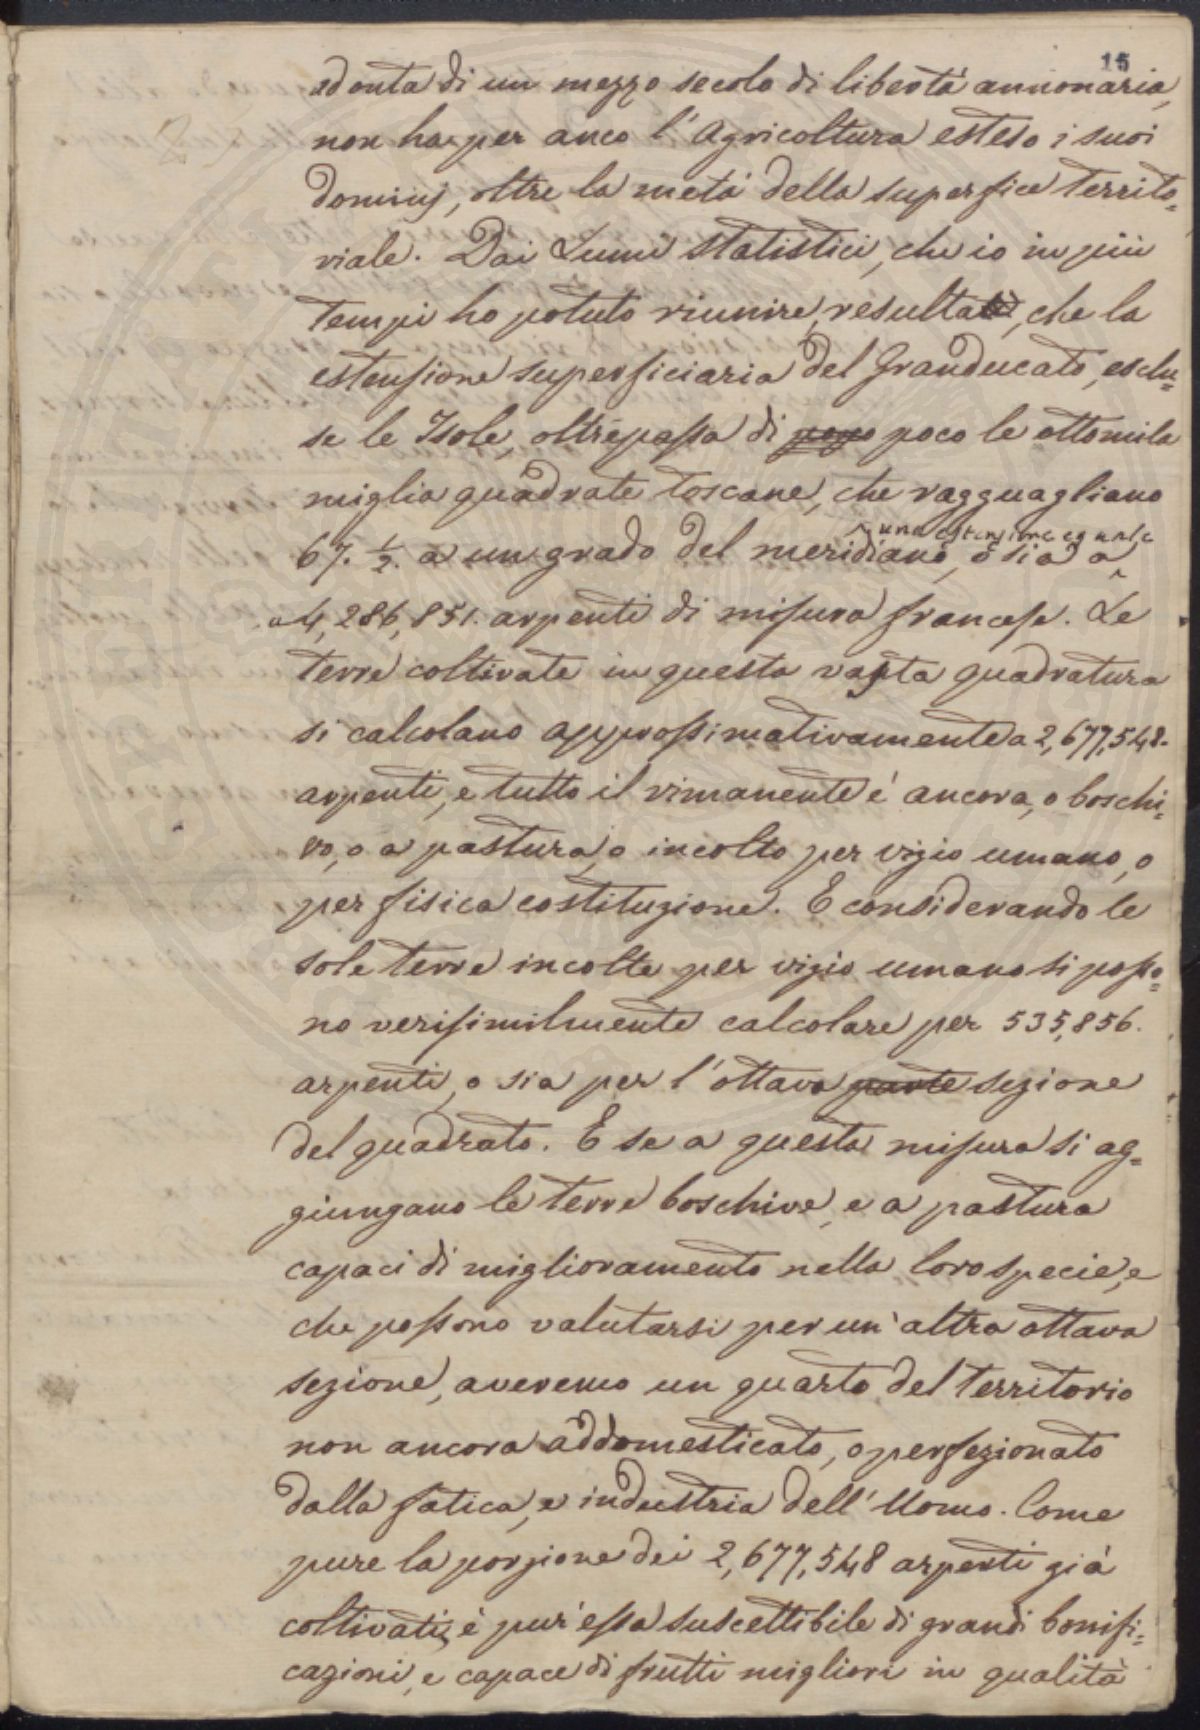 15
ad onta di un mezzo secolo di libertà annonaria,
non ha per anco l'Agricoltura esteso i suoi
dominij, oltre la metà della superfice territo=
riale. Dai Lumi statistici, che io in più
tempi ho potuto riunire, resulta, che la
estensione superficiaria del Granducato, esclu=
se le Isole, oltrepassa di poco le ottomila
miglia quadrate toscane, che ragguagliano
una estensione eguale
67. 1/2. a un grado del meridiano, o sia a
a 4,286,851. arpenti di misura francese. Le
terre coltivate in questa vasta quadratura
si calcolano approssimativamente a 2,677,548.
arpenti, e tutto il rimanente è ancora, o boschi=
vo, o a pastura, o incolto per vizio umano, o
per fisica costituzione. E considerando le
sole terre incolte per vizio umano si posso=
no verisimilmente calcolare per 535,856.
arpenti, o sia per l'ottava parte sezione
del quadrato. E se a questa misura si ag=
giungano le terre boschive, e a pastura
capaci di miglioramento nella loro specie, e
che possono valutarsi per un'altra ottava
sezione, averemo un quarto del territorio
non ancora addomesticato, o perfezionato
dalla fatica, e industria dell'Uomo. Come
pure la porzione dei 2,677,548 arpenti già
coltivati, è pur'essa suscettibile di grandi bonifi=
cazioni, e capace di frutti migliori in qualità